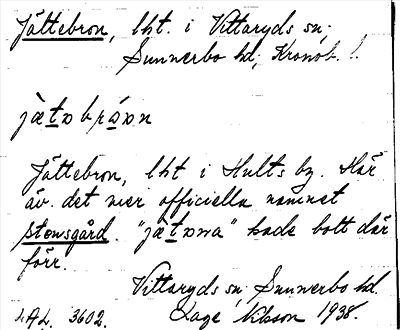 Jättebron, lht. i Vittaryds sn;
Sunnerbo hd; Kronob. l.
jætəbrən
Jättebron, lht i Hults by. Här
äv. det mer officiella namnet
Stensgård. "jætəna" hade bott där
förr.
Vittaryds sn; Sunnerbo hd
LAL. 3602. Lage Nilsson 1938.